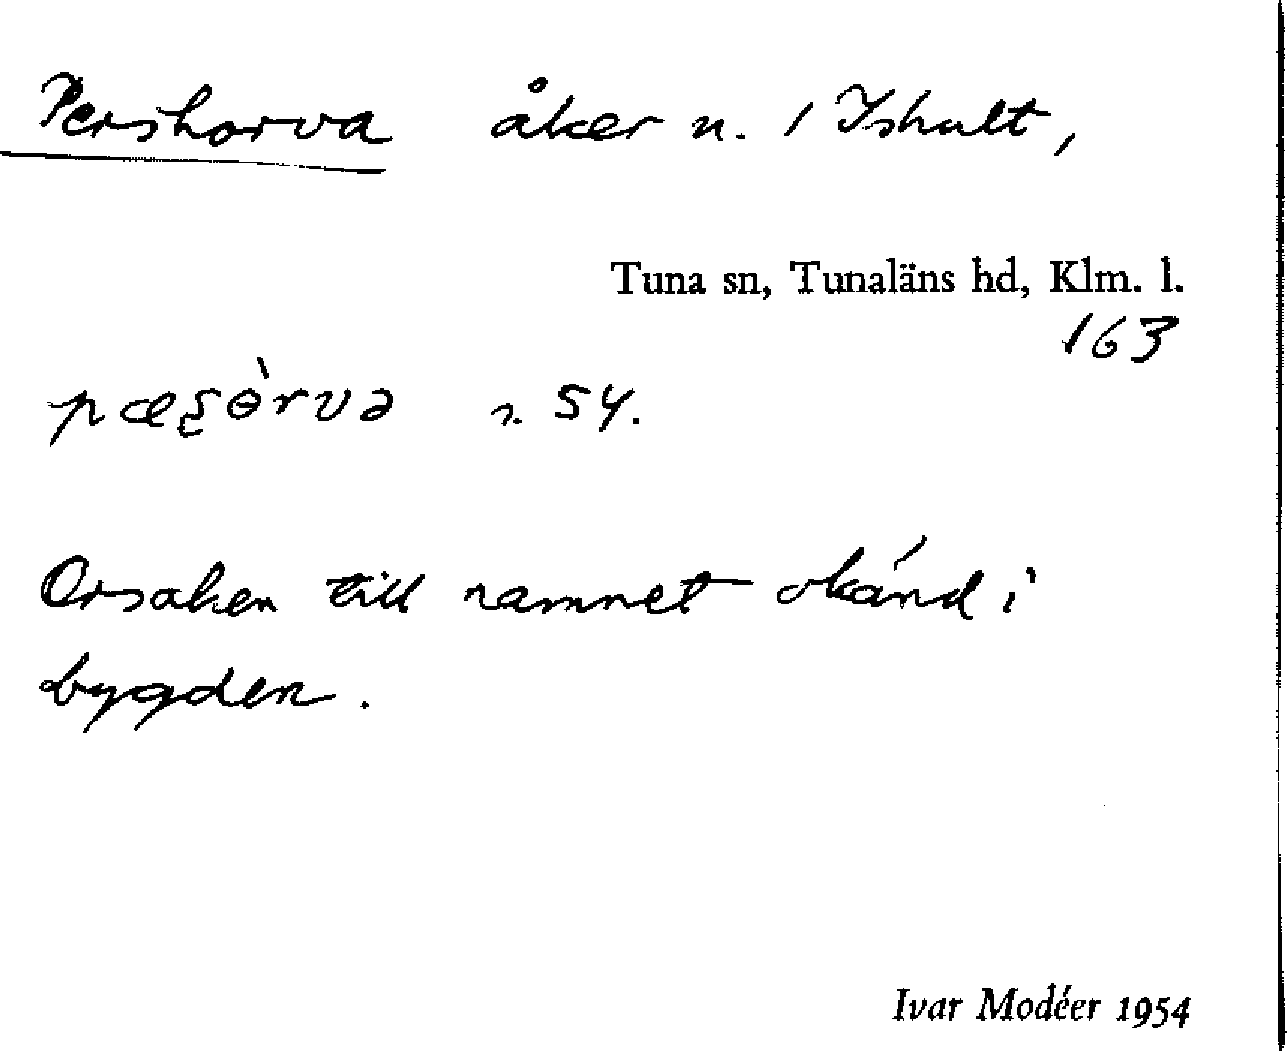 Pershorva åker n. i Ishult,
Tuna sn, Tunaläns hd, Klm. l.
163
pæʂɵ̀rvə n. 54.
Orsaken till namnet okänd i
bygden.
Ivar Modéer 1954